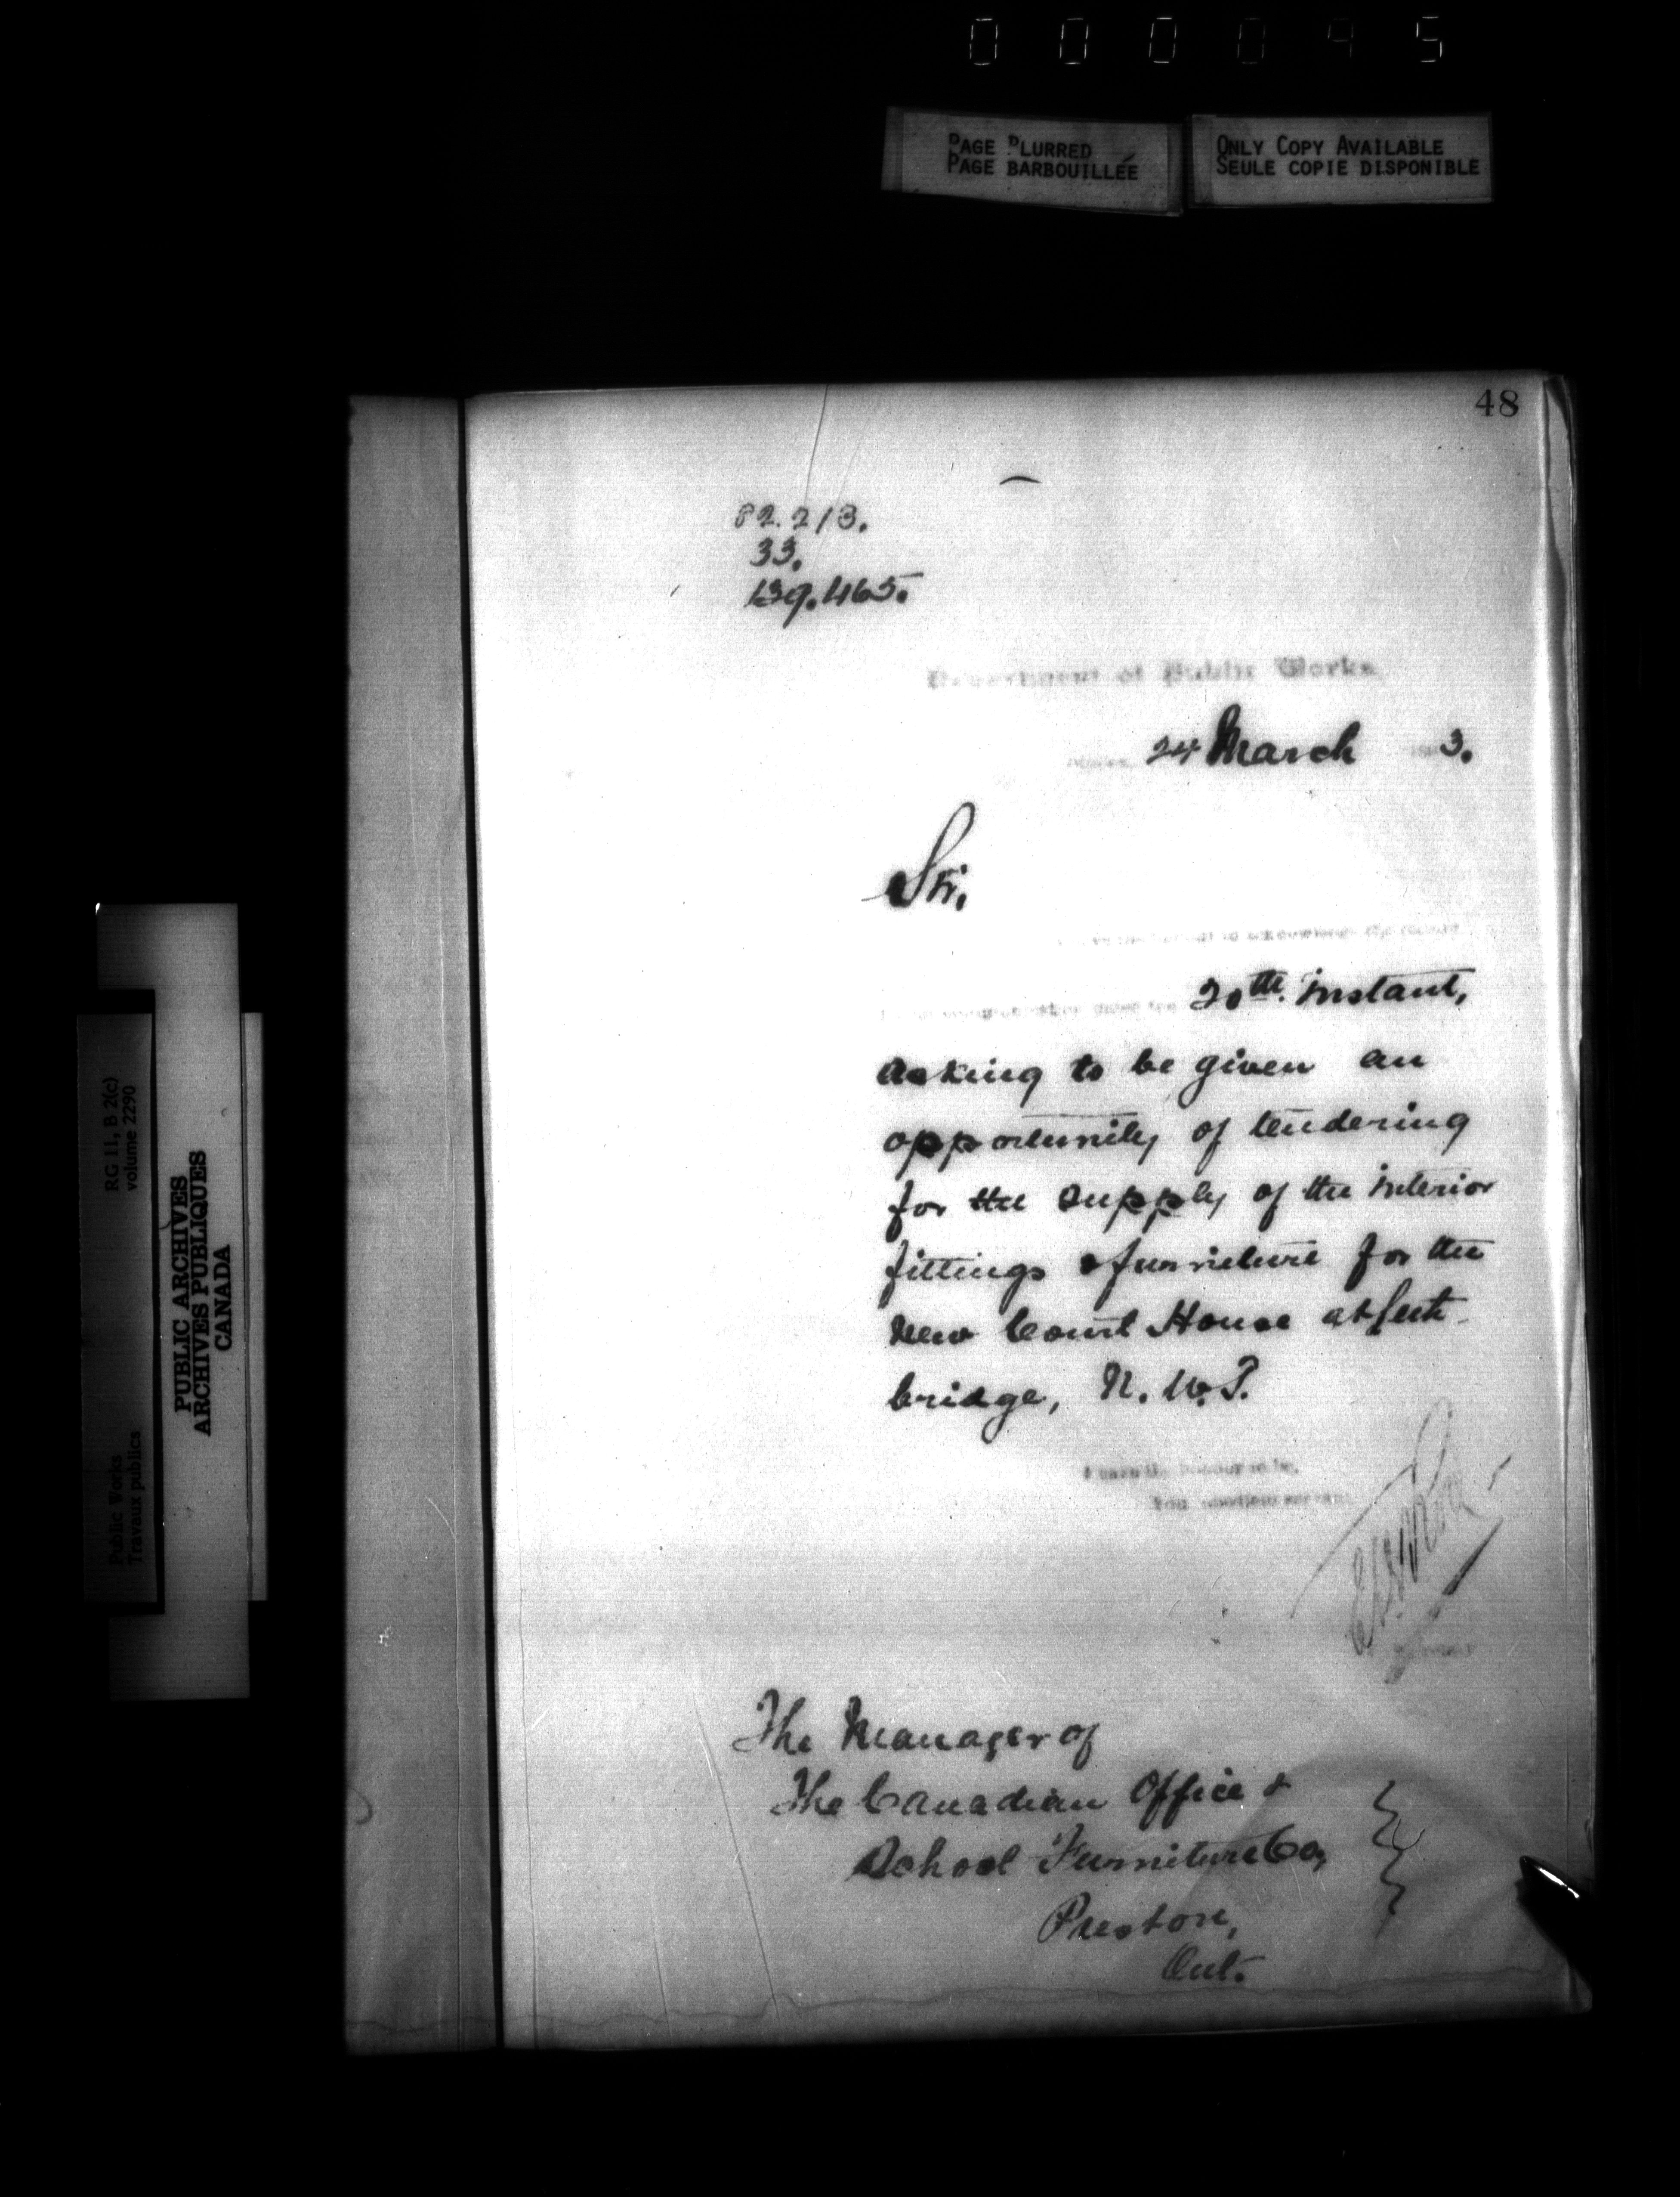 000095
PAGE BLURRED
PAGE BARBOUILLÉE
ONLY COPY AVAILABLE
SEULE COPIE DISPONIBLE
48
82.213.
33.
139.465.
Department of Public Works
24 March 3.
Sir,
to acknowledge the receipt
20th. instant,
asking to be given an
opportunity of tendering
for the supply of the interior
fittings & furniture for the
new Court House at Leth-
bridge, N.W.T.
I have the honour to be,
Your obedient servant
The Manager of
The Canadian Office &
School Furniture Co,
Preston,
Ont.
RG 11, B 2(c)
volume 2290
Public Works
Travaux publics
PUBLIC ARCHIVES
ARCHIVES PUBLIQUES
CANADA